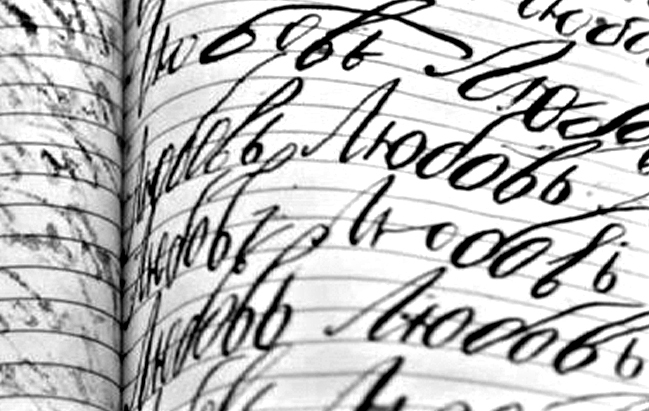 Любовь Любо
Любовь Любовь
Любовь Любовь
Любовь Любовь